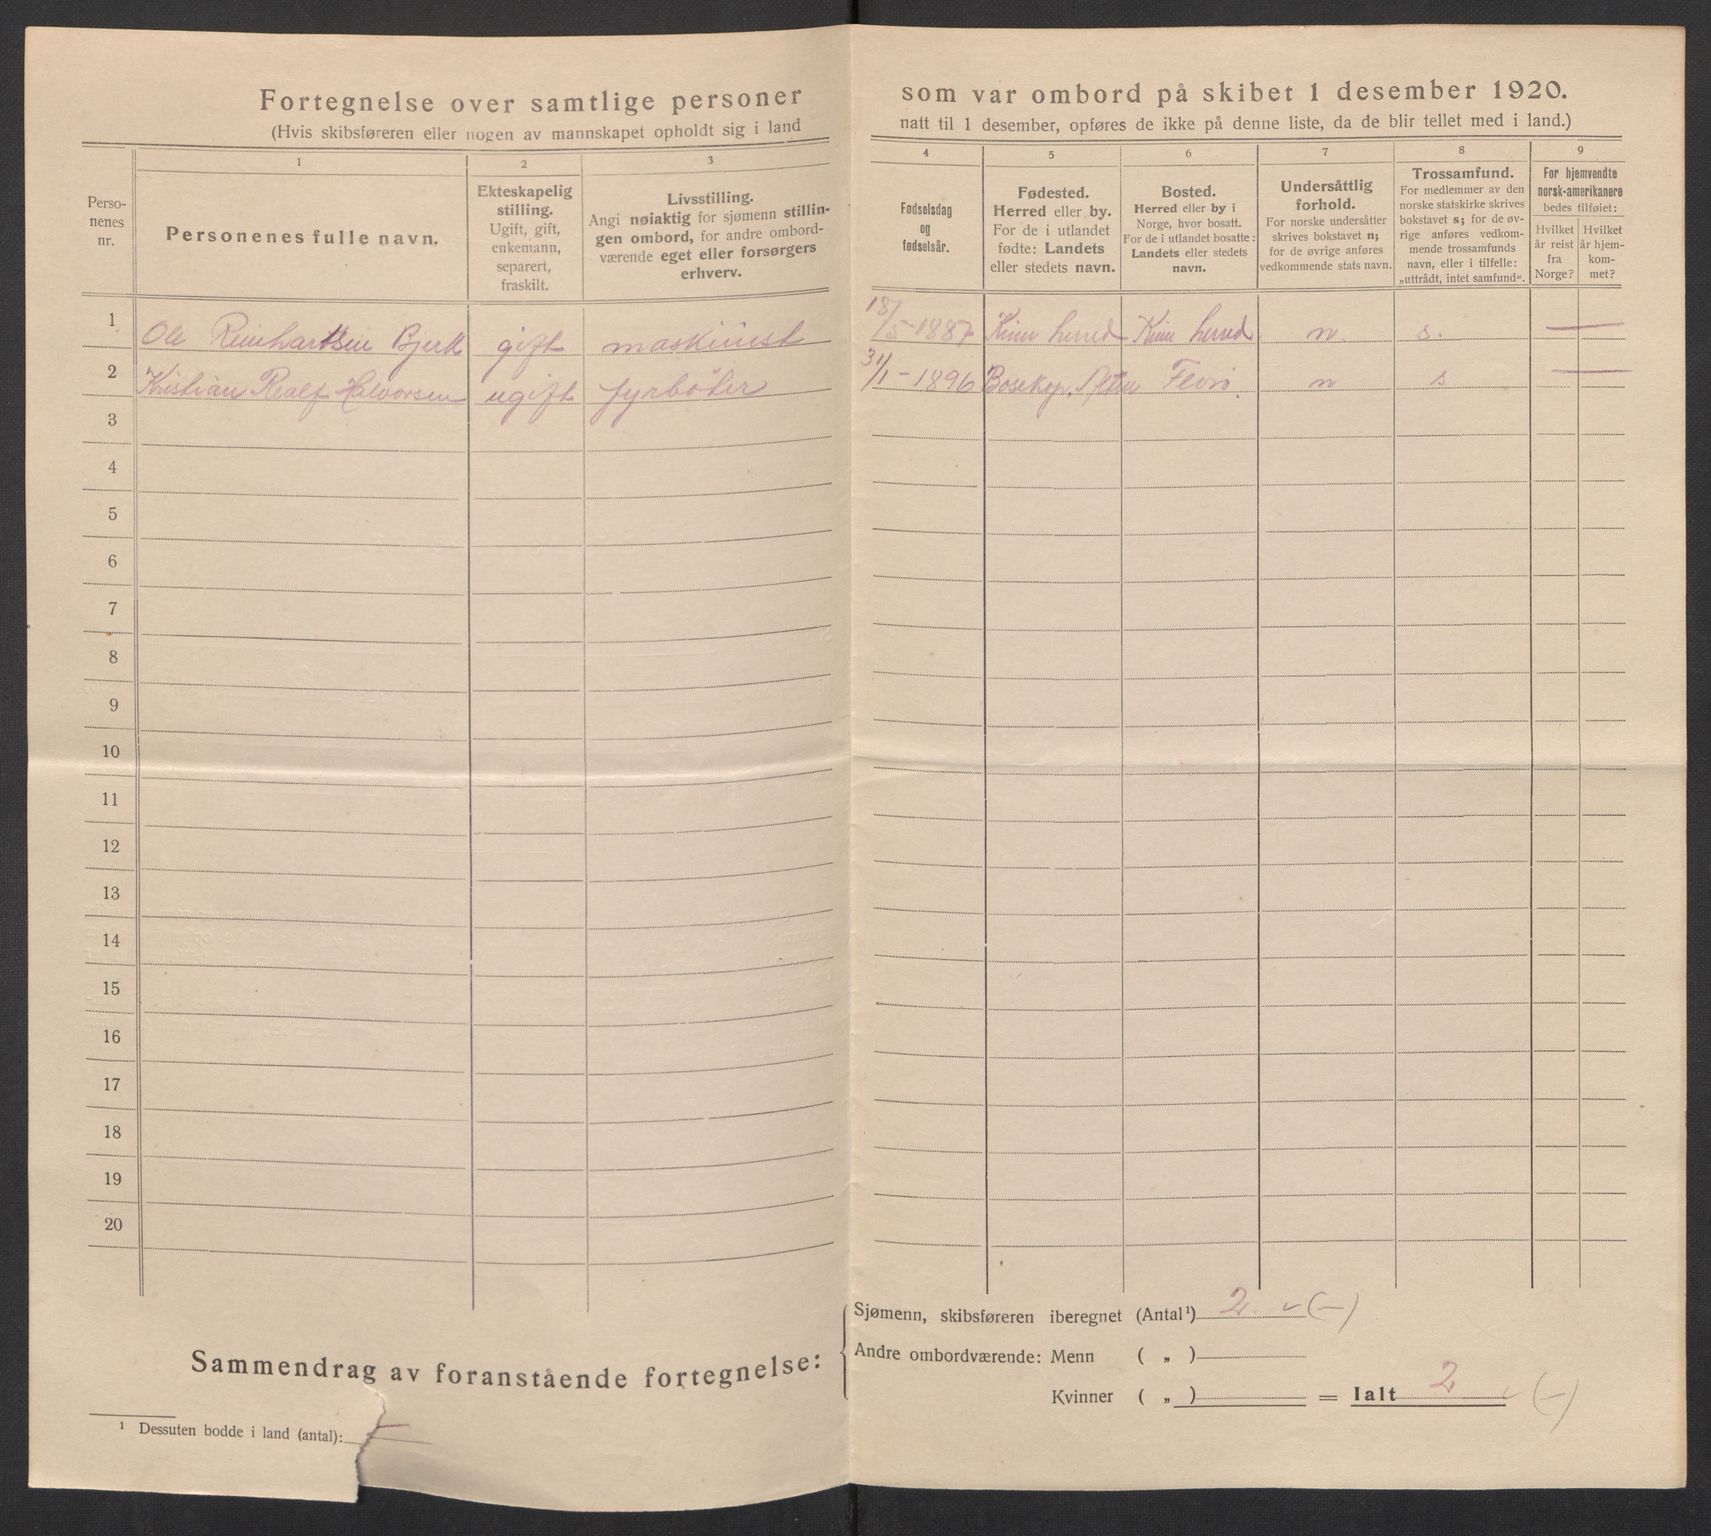 Fortegnelse over samtlige personer som var ombord på skibet 1 desember 1920.
(Hvis skibsføreren eller nogen av mannskapet opholdt sig i land natt til 1 desember, opføres de ikke på denne liste, da de blir tellet med i land.)
Perso-
nenes
nr.
1
Personenes fulle navn.
2
Ekteskapelig
stilling.
Ugift, gift,
enkemann,
separert,
fraskilt.
3
Livsstilling.
Angi nøiaktig for sjømenn stillin-
gen ombord, for andre ombord-
værende eget eller forsørgers
erhverv.
4
Fødselsdag
og
fødselsår.
5
Fødested.
Herred eller by.
For de i utlandet
fødte: Landets
eller stedets navn.
6
Bosted.
Herred eller by i
Norge, hvor bosatt.
For de i utlandet bosatte:
Landets eller stedets
navn.
7
Undersåttlig
forhold.
For norske undersåtter
skrives bokstavet n;
for de øvrige anføres
vedkommende stats navn.
8
Trossamfund.
For medlemmer av den
norske statskirke skrives
bokstavet s; for de øv-
rige anføres vedkom-
mende trossamfunds
navn, eller i tilfelle:
„uttrådt, intet samfund".
9
For hjemvendte
norsk-amerikanere
bedes tilføiet:
Hvilket
år reist
fra
Norge?
Hvilket
år hjem-
kom-
met?
1 Ole Reinhartsen Bjerk gift maskinist 18/5-1887 Kinn herred Kinn herred n. s. —
2 Kristian Realf Halvorsen ugift fyrbøter 31/1-1896 Bosekop, Alten Florø. n s —
3
4
5
6
7
8
9
10
11
12
13
14
15
16
17
18
19
20
Sammendrag av foranstående fortegnelse:
Sjømenn, skibsføreren iberegnet (Antal¹) 2 ✓ (—)
Andre ombordværende: Menn ( „ )
Kvinner ( „ ) = Ialt 2 ✓ (—)
¹ Dessuten bodde i land (antal): —